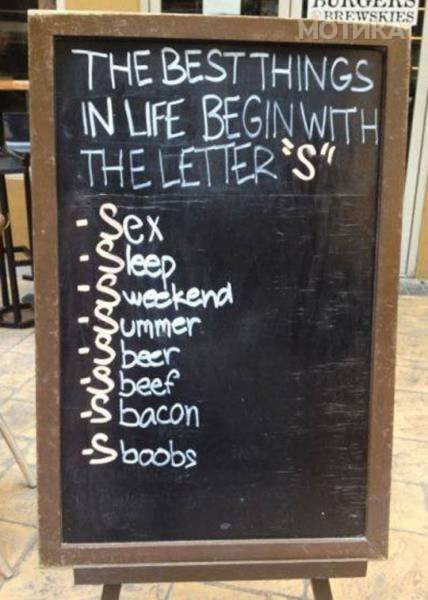 BURGERS
&BREWSKIES
МОТИКА
THE BEST THINGS
IN LIFE BEGIN WITH
THE LETTER "S"
- Sex
- Sleep
- Sweekend
- Summer
- Sbeer
- Sbeef
- Sbacon
- Sboobs